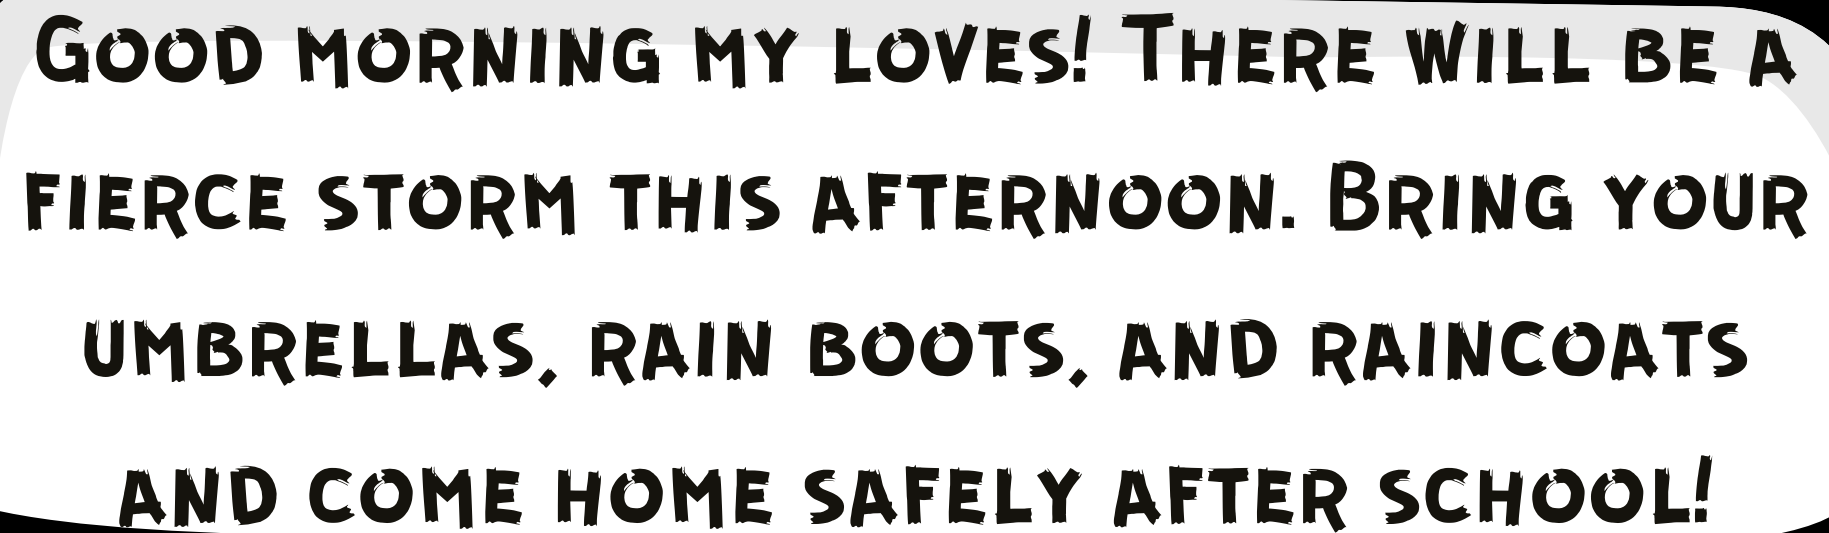 Good morning my loves! There will be a
fierce storm this afternoon. Bring your
umbrellas, rain boots, and raincoats
and come home safely after school!